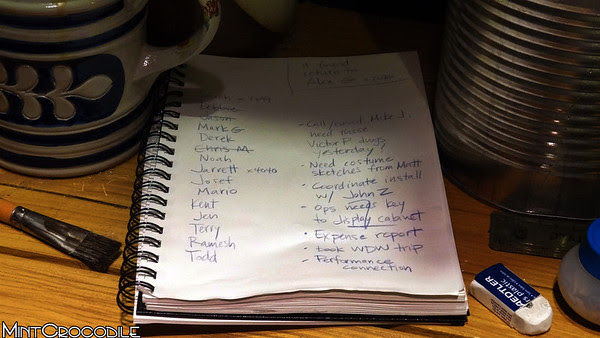 if found
return to
Debbie
Jason
Mark G
Derek
Chris M
Noah
Jarrett x4040
Josef
Mario
Kent
Jen
Terry
Ramesh
Todd
- Call/email Mike J.
need those
Victor P. dwgs
yesterday!
- Need costume
sketches from Matt
- Coordinate install
w/ John Z
- Ops needs key
to display cabinet
- Expense report
- Book WDW trip
- Performance
connection
STAEDTLER
rs plastic
MintCrocodile